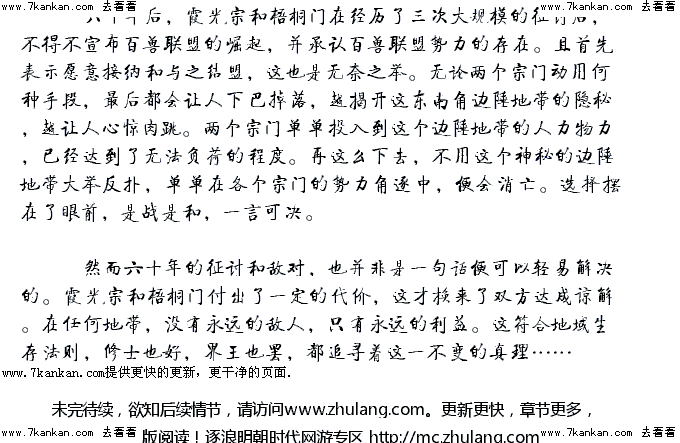 www.7kankan.com 去看看 www.7kankan.com 去看看 www.7kankan.com 去看看
十年后，霞光宗和梧桐门在经历了三次大规模的征讨后，
不得不宣布百兽联盟的崛起，并承认百兽联盟势力的存在。且首先
表示愿意接纳和与之结盟，这也是无奈之举。无论两个宗门动用何
种手段，最后都会让人下巴掉落，越揭开这东南角边陲地带的隐秘
，越让人心惊肉跳。两个宗门单单投入到这个边陲地带的人力物力
，已经达到了无法负荷的程度。再这么下去，不用这个神秘的边陲
地带大举反扑，单单在各个宗门的势力角逐中，便会消亡。选择摆
在了眼前，是战是和，一言可决。
然而六十年的征讨和敌对，也并非是一句话便可以轻易解决
的。霞光宗和梧桐门付出了一定的代价，这才换来了双方达成谅解
。在任何地带，没有永远的敌人，只有永远的利益。这符合地域生
存法则，修士也好，界王也罢，都追寻着这一不变的真理……
www.7kankan.com提供更快的更新，更干净的页面.
未完待续，欲知后续情节，请访问www.zhulang.com。更新更快，章节更多，
版阅读！逐浪明朝时代网游专区 http://mc.zhulang.com/
www.7kankan.com 去看看 www.7kankan.com 去看看 www.7kankan.com 去看看